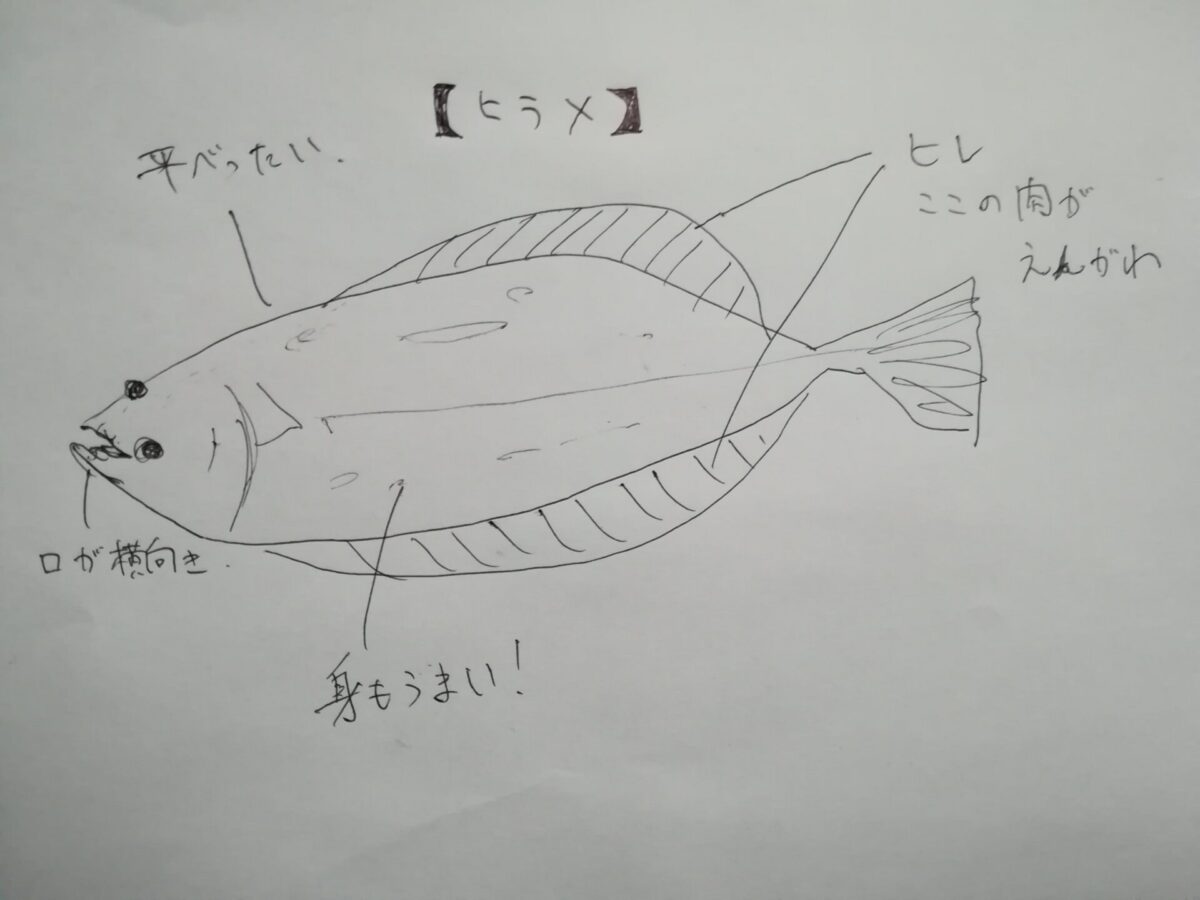 【ヒラメ】
平べったい.
ヒレ
ここの肉が
えんがわ
口が横向き.
身もうまい!